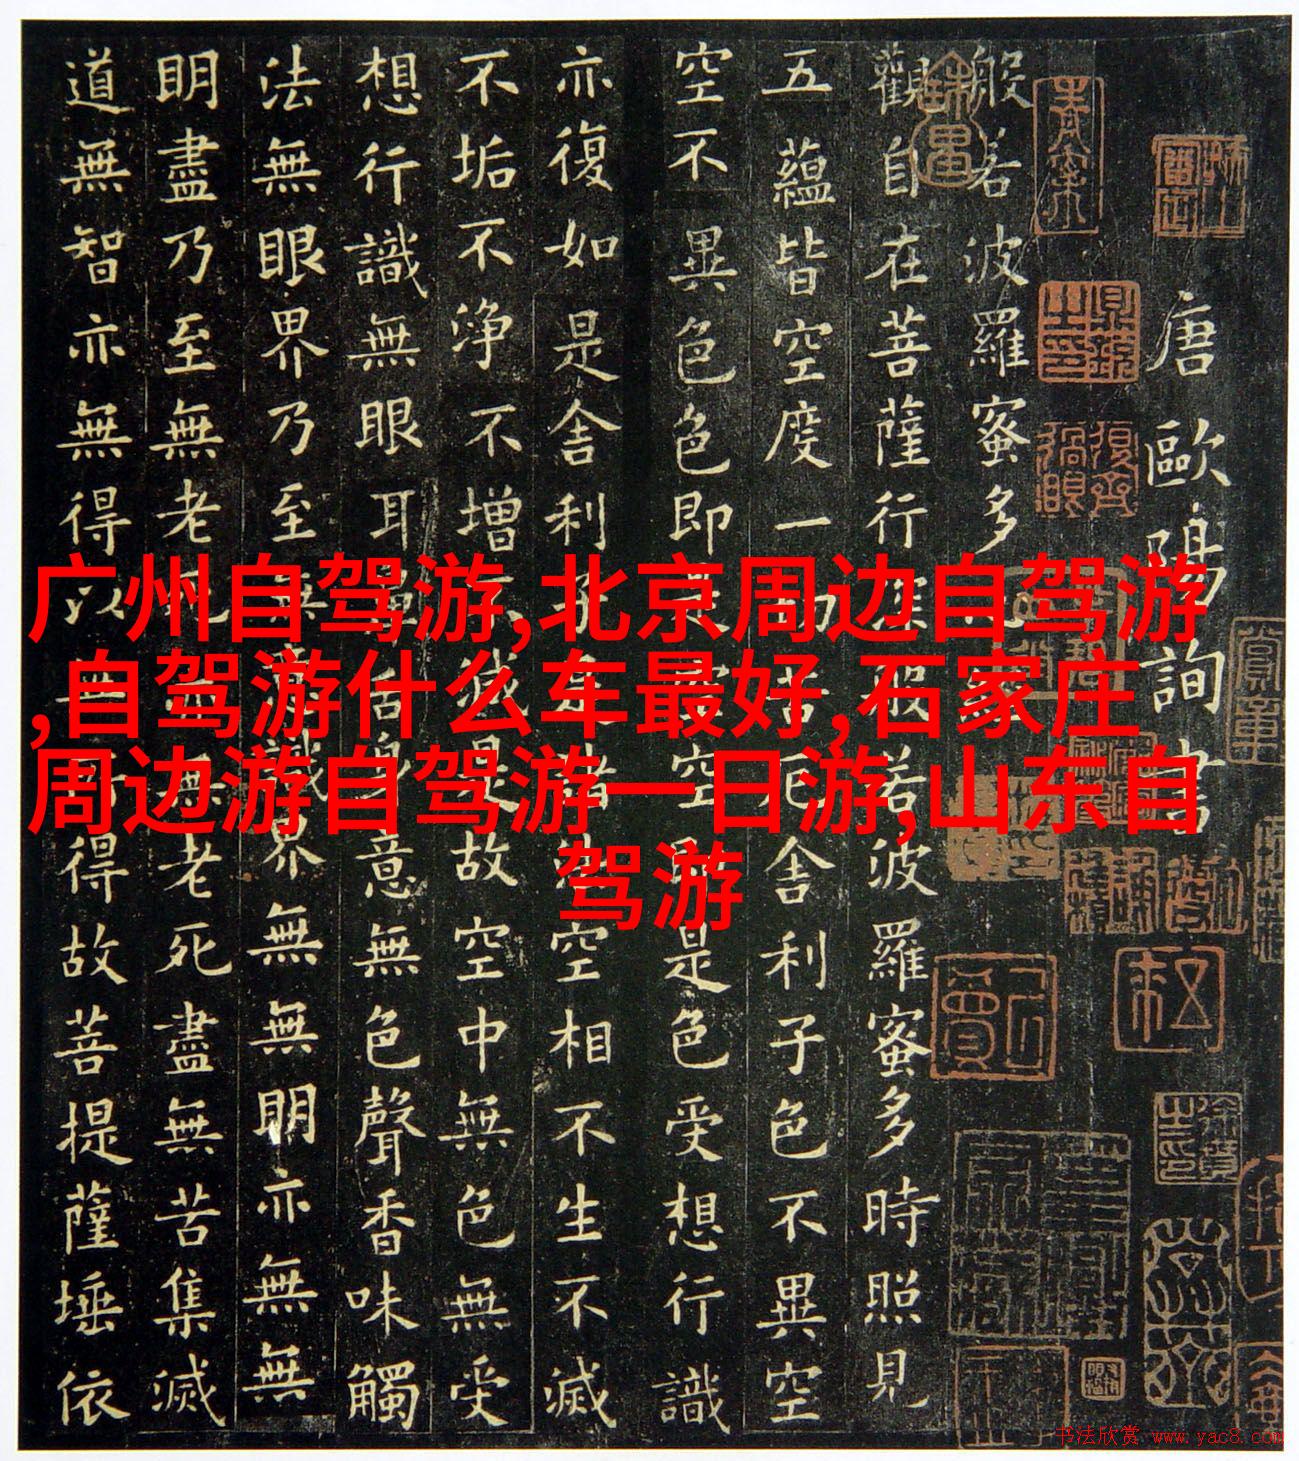 唐歐陽詢書
般若波羅蜜多心經
觀自在菩薩行深般若波羅蜜多時照見
五蘊皆空度一切苦厄舍利子色不異空
空不異色色即是空空即是色受想行識
亦復如是舍利子是諸法空相不生不滅
不垢不淨不增不減是故空中無色無受
想行識無眼耳鼻舌身意無色聲香味觸
法無眼界乃至無意識界無無明亦無無
明盡乃至無老死亦無老死盡無苦集滅
道無智亦無得以無所得故菩提薩埵依
广州自驾游,北京周边自驾游
,自驾游什么车最好,石家庄
周边游自驾游一日游,山东自
驾游
书法欣赏 www.yac8.com